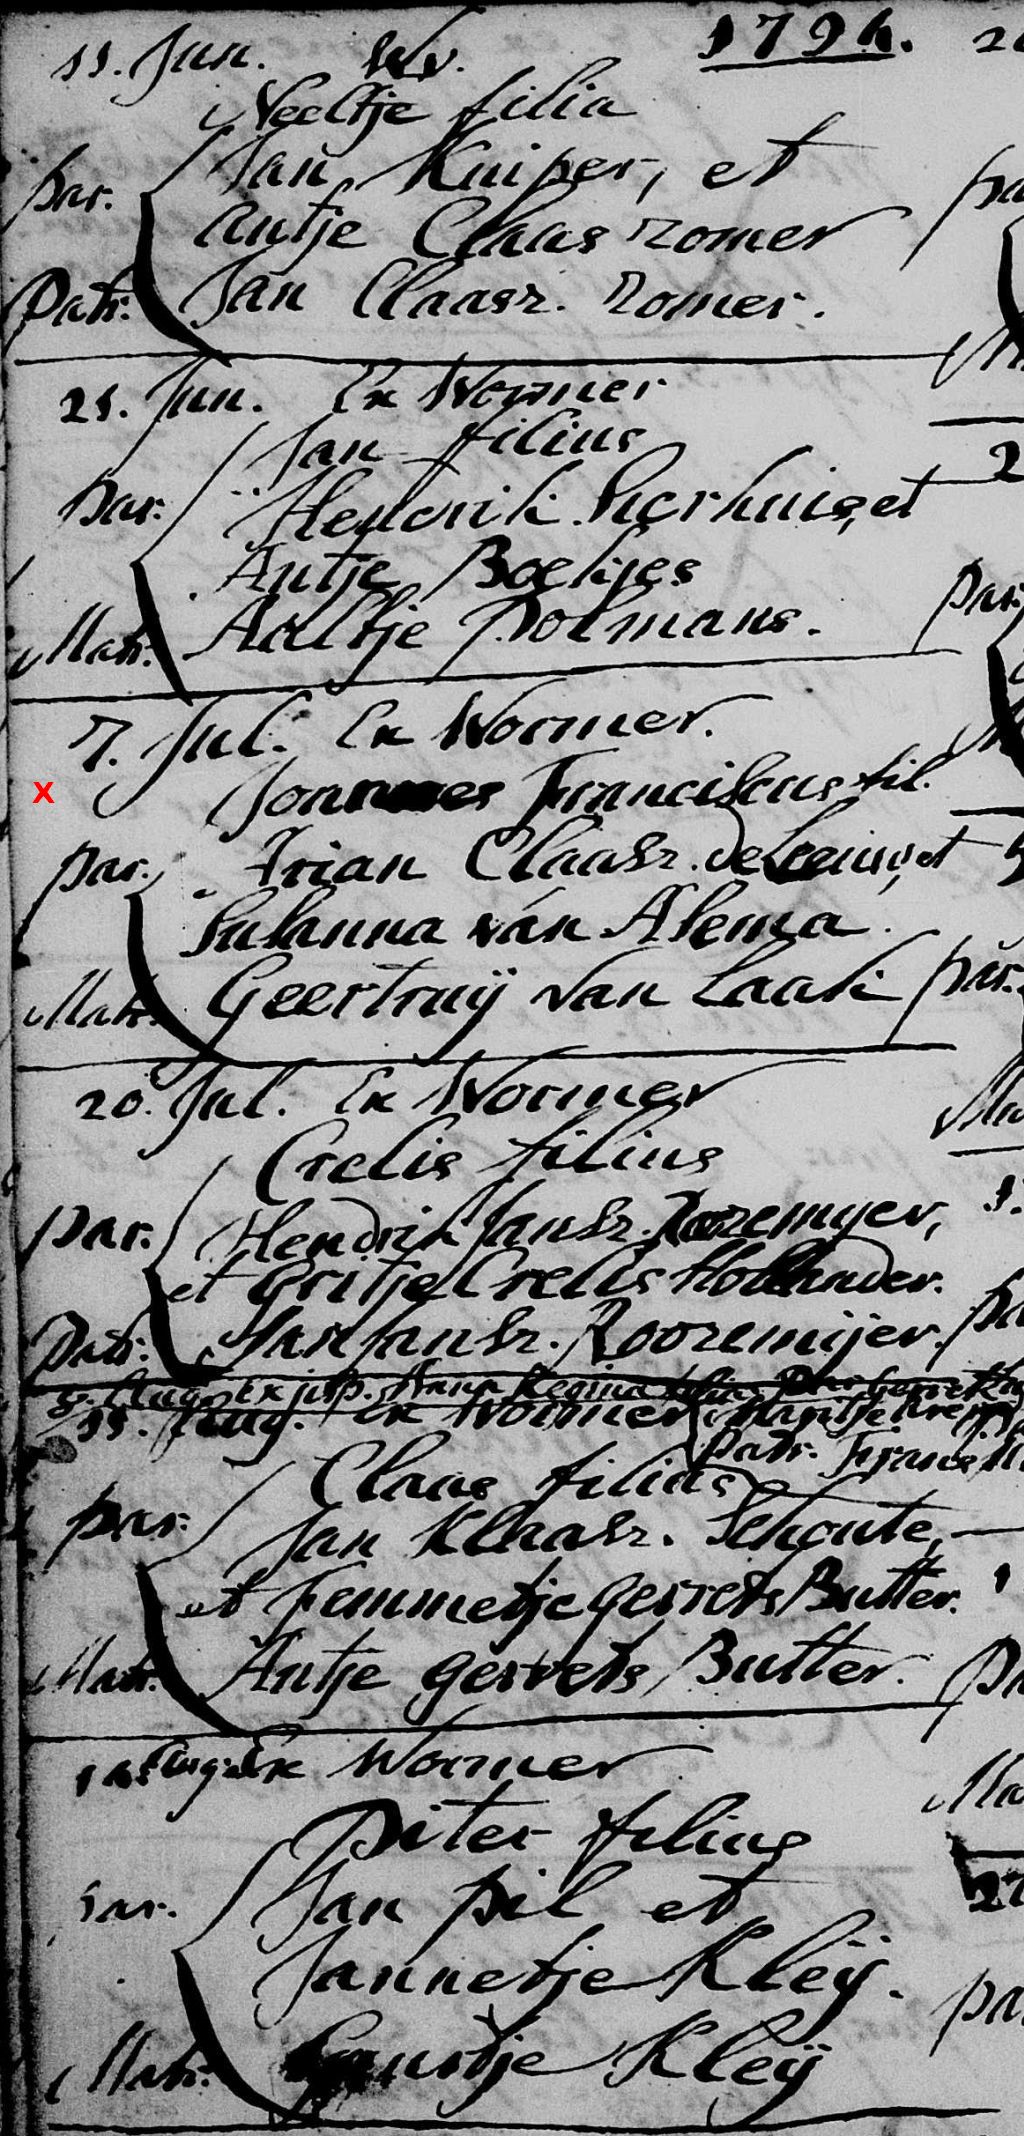 1796.
11. Jun. Wv.
Neeltje filia
par. Jan Kuiper, et
Antje Claas Romer
Patr. Jan Claasz. Romer.
21. Jun. Ex Wormer
Jan filius
par. Hendrik et
Antje Boekjes
Matr. Aaltje Polmans.
7. Jul. Ex Wormer.
x
Joannes Franciscus fil.
par. Arian Claasz. de et
Susanna van Alema.
Matr. Geertruij van Laak
20. Jul. Ex Wormer
Crelis filius
par. Hendrik Jansz. Roozemyer,
et Gritje Crelis Hollander.
Patr. Jan Jansz. Roozemijer.
8. Aug. Ex jisp. Anna Regina filia
11. Aug. Ex Wormer
Patr. Frans
Claas filius
par. Jan Klaasz. Schoute,
et Femmetje Gerrets Butter.
Matr. Antje gerrets Butter.
Aug. Ex Wormer
Piter filius
par. Jan pil et
Jannetje Kleij.
Matr. Kleij